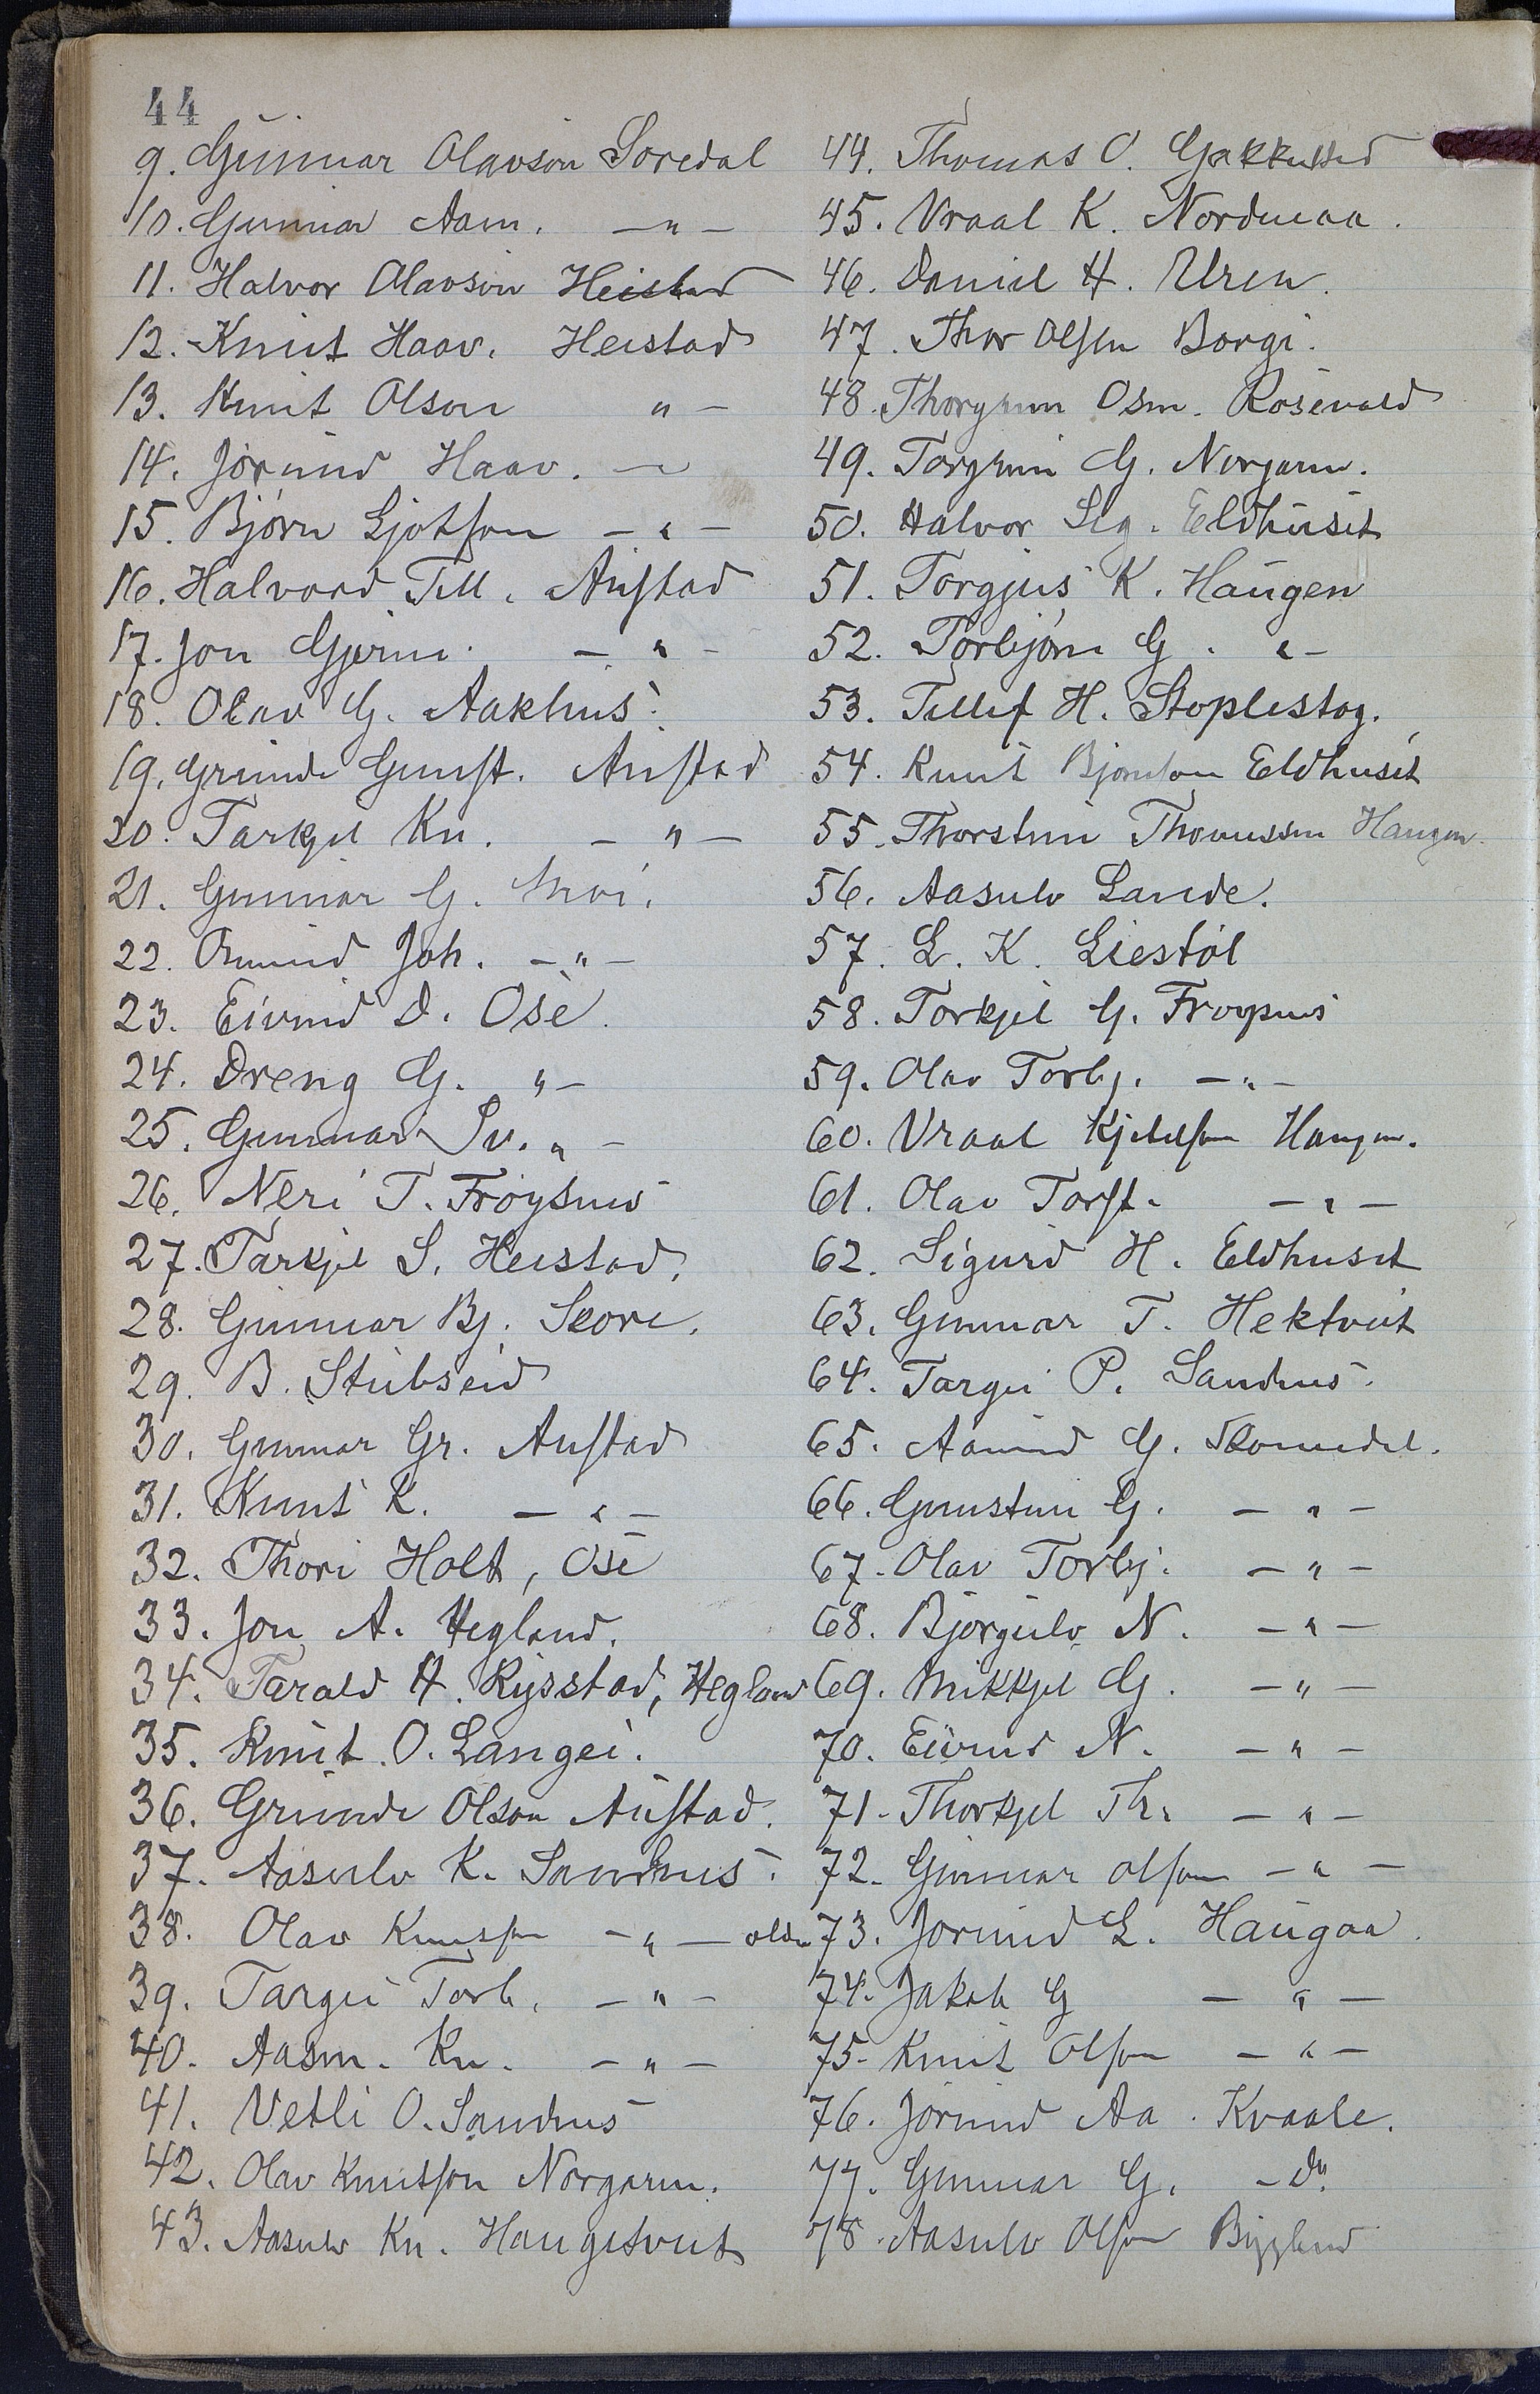 44
9. Gunnar Olavson Soredal
10. Gunnar Aam. — " —
11. Halvor Olavson Heistad
12. Knut Haav. Heistad
13. Knut Olson " —
14. Jørund Haav. —
15. Bjørn Ljotson — " —
16. Halvord Tell. Austad
17. Jon Gjerm. — " —
18. Olav G. Aakhus.
19. Grunde Gunst. Austad
20. Tarkjel Kn. — " —
21. Gunnar G. Moi.
22. Omund Joh. — " —
23. Eivind D. Ose.
24. Dreng G. " —
25. Gunnar Sv. " —
26. Neri T. Frøysnes
27. Tarkjel S. Heistad.
28. Gunnar Bj. Skore.
29. B. Stubseid
30. Gunnar Gr. Austad
31. Knut K. — " —
32. Thore Holt, Ose
33. Jon A. Hegland.
34. Tarald H. Rysstad, Hegland
35. Knut O. Langei.
36. Grunde Olson Austad.
37. Aasulv K. Sandnes.
38. Olav Knutson — " — older
39. Targei Torb. — " —
40. Aasm. Kn. — " —
41. Vetli O. Sandnes
42. Olav Knutson Norgarm.
43. Aasulv Kn. Haugetveit
44. Thomas O.
45. Vraal K. Nordmaa.
46. Daniel H. Uren.
47. Thor Olsen Borgi.
48. Thorgrim Osm. Rosevald
49. Torgrim G. Norgarm.
50. Halvor Sig. Eldhuset
51. Torgjus K. Haugen
52. Torbjørn G. " —
53. Tellef H. Stoplestog.
54. Knut Bjornson Eldhuset
55. Thorstein Thomassen Haugen.
56. Aasulv Lande.
57. L. K. Liestøl
58. Torkjel G. Frøysnes
59. Olav Torbj. — " —
60. Vraal Kjetelson Haugen.
61. Olav Torst. — " —
62. Sigurd H. Eldhuset
63. Gunnar T. Hektveit
64. Targei P. Sandnes.
65. Aamund G. Skomedal.
66. Gunstein G. — " —
67. Olav Torbj. — " —
68. Bjorgulv N. — " —
69. Mikkjel G. — " —
70. Eivind N. — " —
71. Thorkjel Th. — " —
72. Gunnar Olson — " —
73. Jorund L. Haugaa.
74. Jakob G — " —
75. Knut Olson — " —
76. Jørund Aa. Kvaale.
77. Gunnar G. — do.
78. Aasulv Olson Bygland